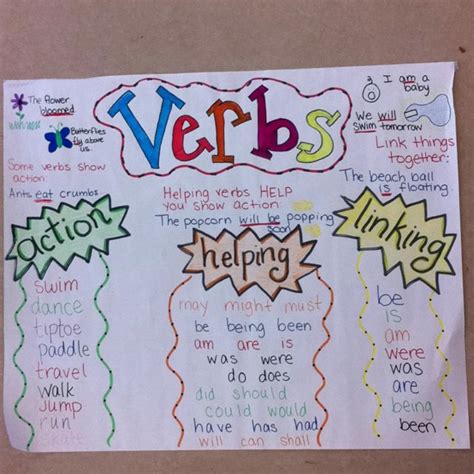 Verbs
The flower
bloomed
Butterflies
fly above
us.
Some verbs show
action:
Ants eat crumbs
I am a
baby
We will
swim tomorrow
Link things
together:
The beach ball
is floating.
Helping verbs HELP
you show action:
The popcorn will be popping
soon
action
swim
dance
tiptoe
paddle
travel
walk
jump
run
skate
helping
may might must
be being been
am are is
was were
do does
did should
could would
have has had
will can shall
linking
be
is
am
were
was
are
being
been